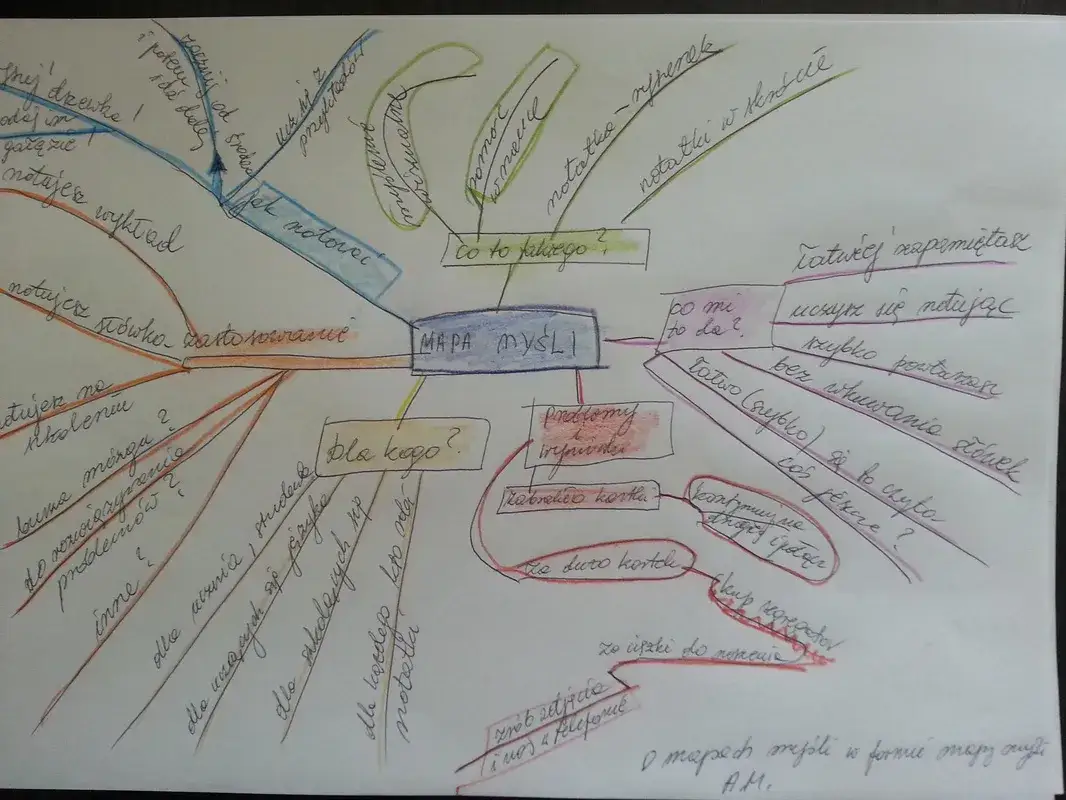 MAPA MYŚLI
co to takiego?
wizualne
pomoc
w nauce
notatka - rysunek
notatki w skrócie
co mi
to da?
łatwiej zapamiętasz
uczysz się notując
szybko powtarzasz
bez wkuwania słówek
łatwo (szybko) się to czyta
coś jeszcze?
problemy
i wymówki
zabraknie kartki
kontynuuj na
drugiej i połącz
za dużo kartek
kup segregator
za ciężki do noszenia
zrób zdjęcia
i noś w telefonie
dla kogo?
dla ucznia, studenta
dla uczących się języka
dla szkolących się
dla każdego, kto robi
notatki
zastosowanie
notujesz wykład
notujesz słówka
notujesz na
szkoleniu
burza mózgu?
do rozwiązywania
problemów?
inne?
jak notować
drzewka!
gałęzie!
zacznij od środka
i potem
idź dalej
ucz się z
przykładów
O mapach myśli w formie mapy myśli
A.M.